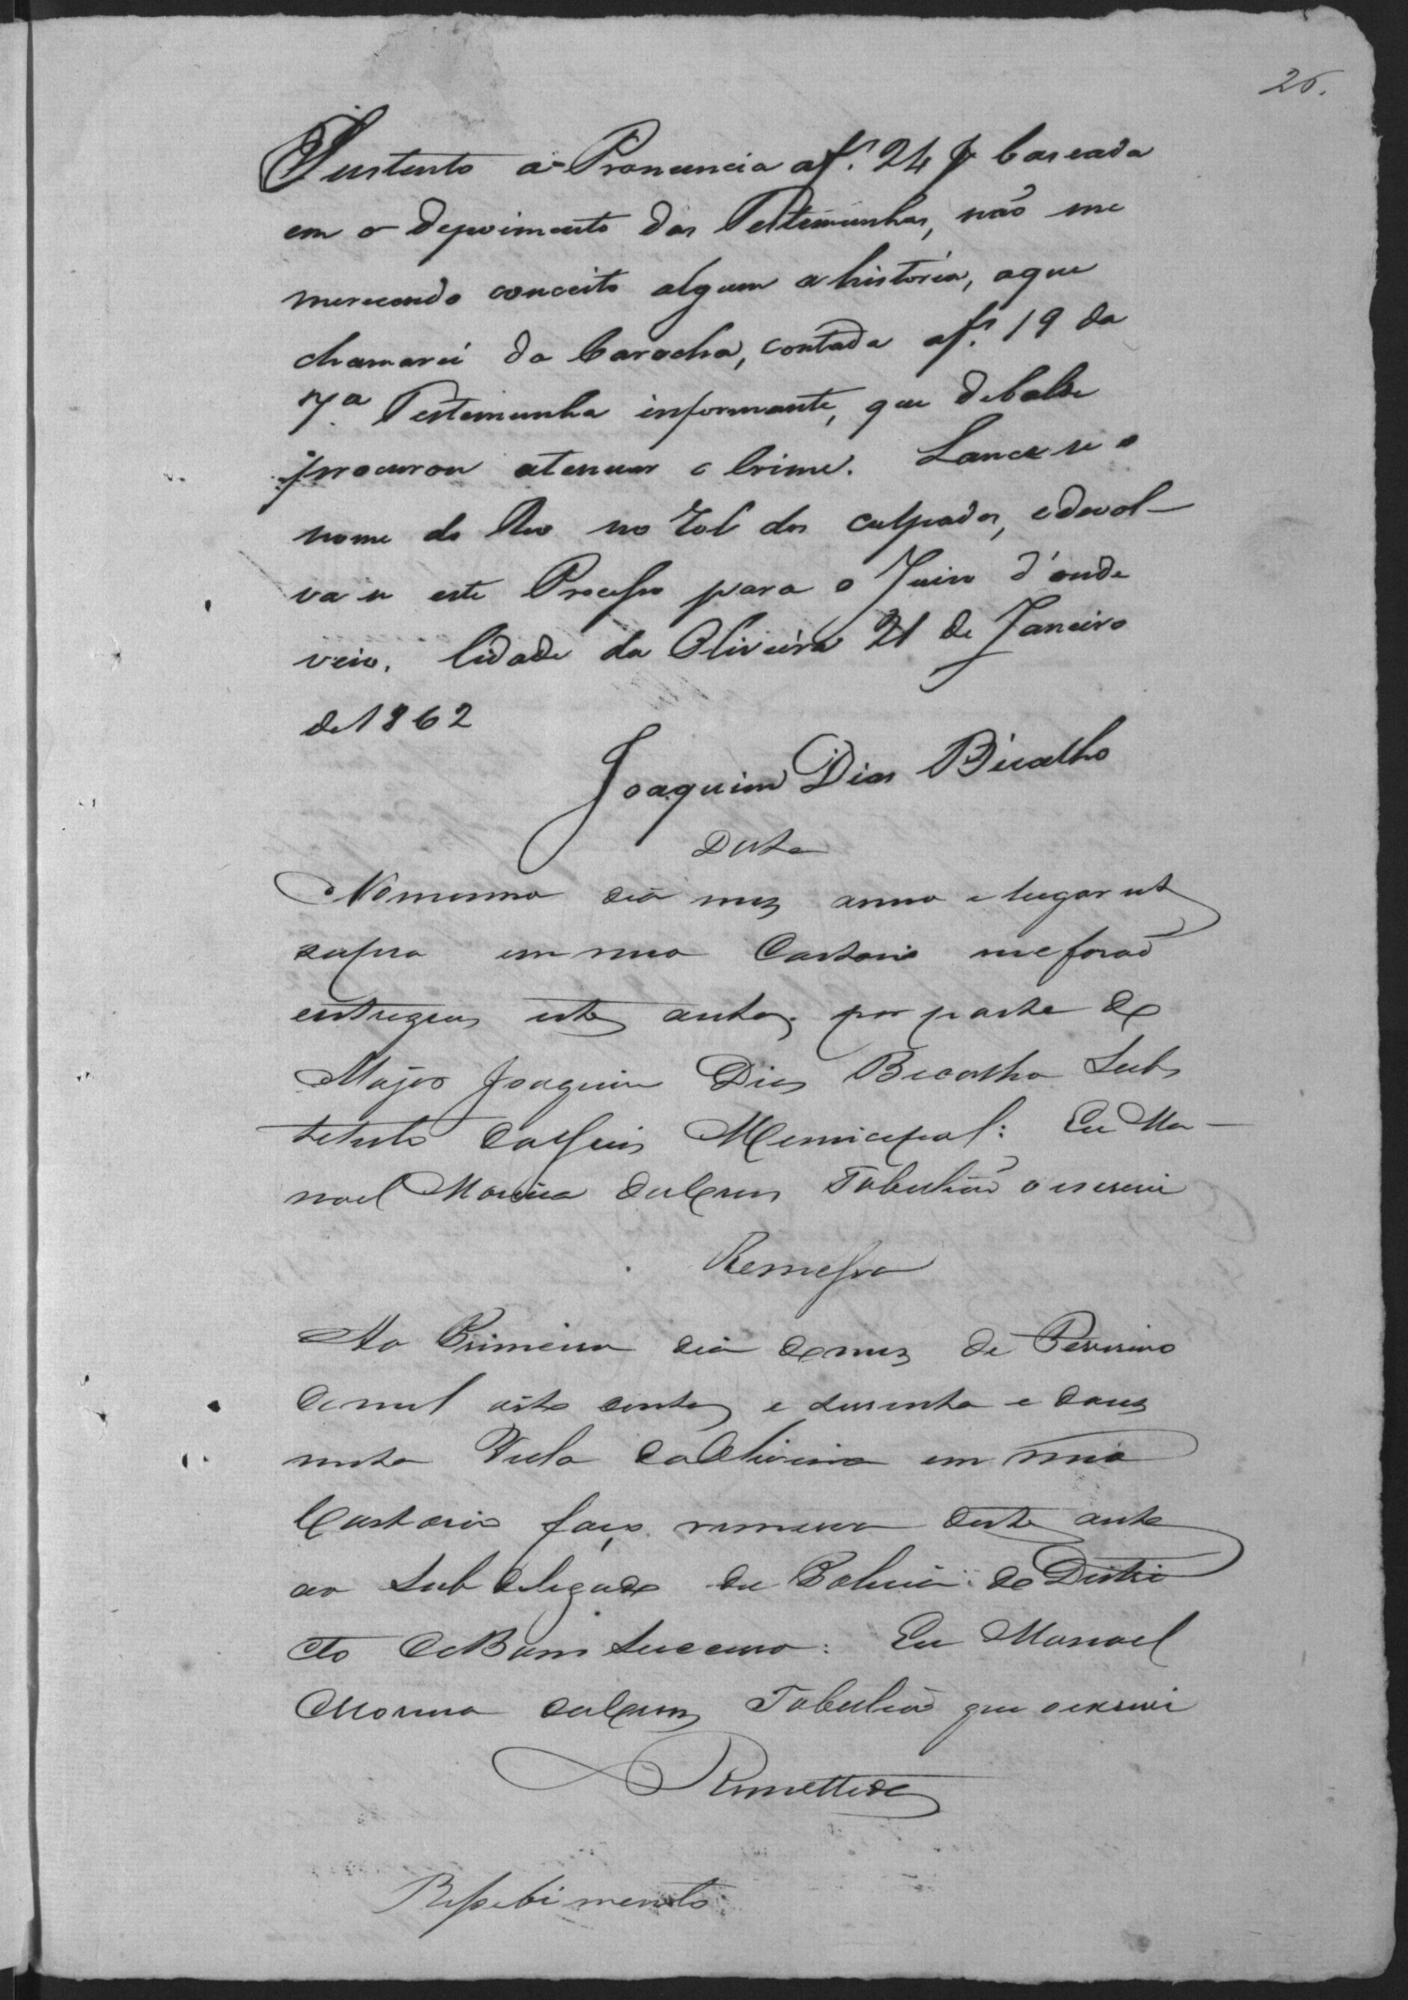 26.
Sustento a Pronuncia af.s 24 baseada
em o depoimento das Testemunhas, não me
merecendo conceito algum a historia, a que
chamarei da Carocha, contada af.s 19 da
7.a Testemunha informante, que debalde
procurou atenuar o Crime. Lance se o
nome do Reo no Rol dos culpados, e devol-
va se este Processo para o Juiso d'onde
veio. Cidade da Oliveira 21 de Janeiro
de 1862
Joaquim Dias Bicalho
Data
No mesmo dia mez anno e lugar ut
supra em meo Cartorio me forão
entregues estes autos por parte do
Major Joaquim Dias Bicalho Subs
tetuto do Juis Municipal: Eu Ma-
noel Moreira da Cruz Tabelião o escrevi
Remessa
Ao Primeiro dia do mez de Fevereiro
de mil oito centos e secenta e dous
nesta Villa da Oliveira em meo
Cartorio faço remessa destes autos
ao Sub delegado de Policia do Distri
cto de Bom Sucesso: Eu Manoel
Moreira da Cruz Tabelião que o escrevi
Remettido
Resebimento